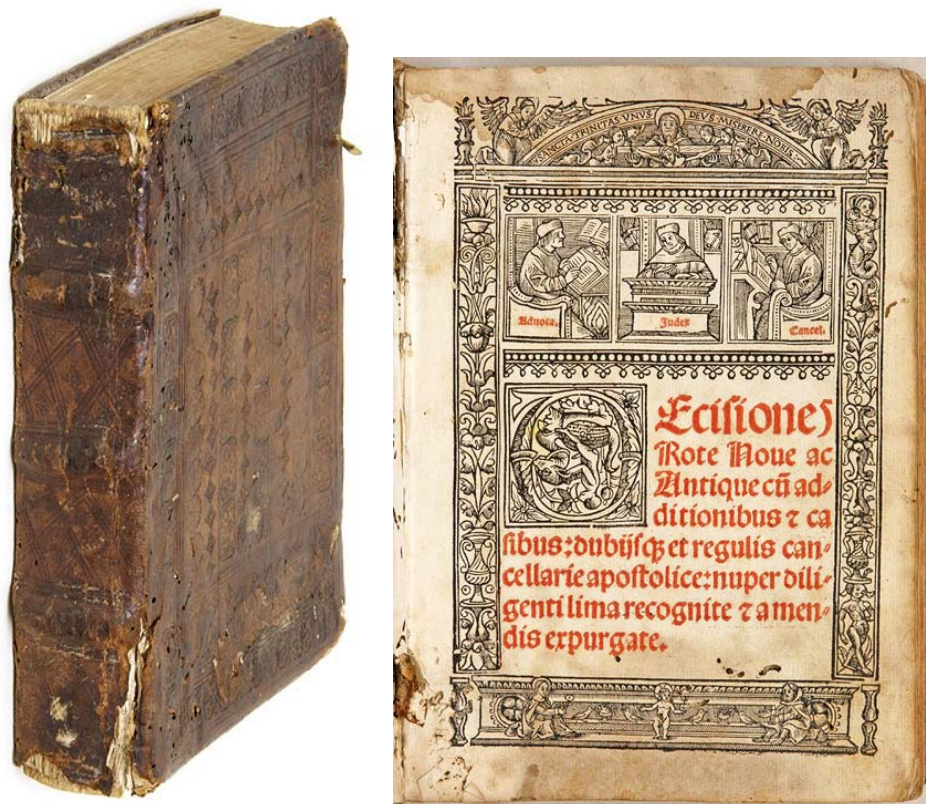 SANCTA·TRINITAS·VNVS·DEVS·MISERERE·NOBIS·
Advoca.
Judex
Cancel.
Decisiones
Rote Noue ac
Antique cū ad⸗
ditionibus ⁊ ca
sibus: dubijsqꝫ et regulis can⸗
cellarie apostolice: nuper dili⸗
genti lima recognite ⁊ a men⸗
dis expurgate.